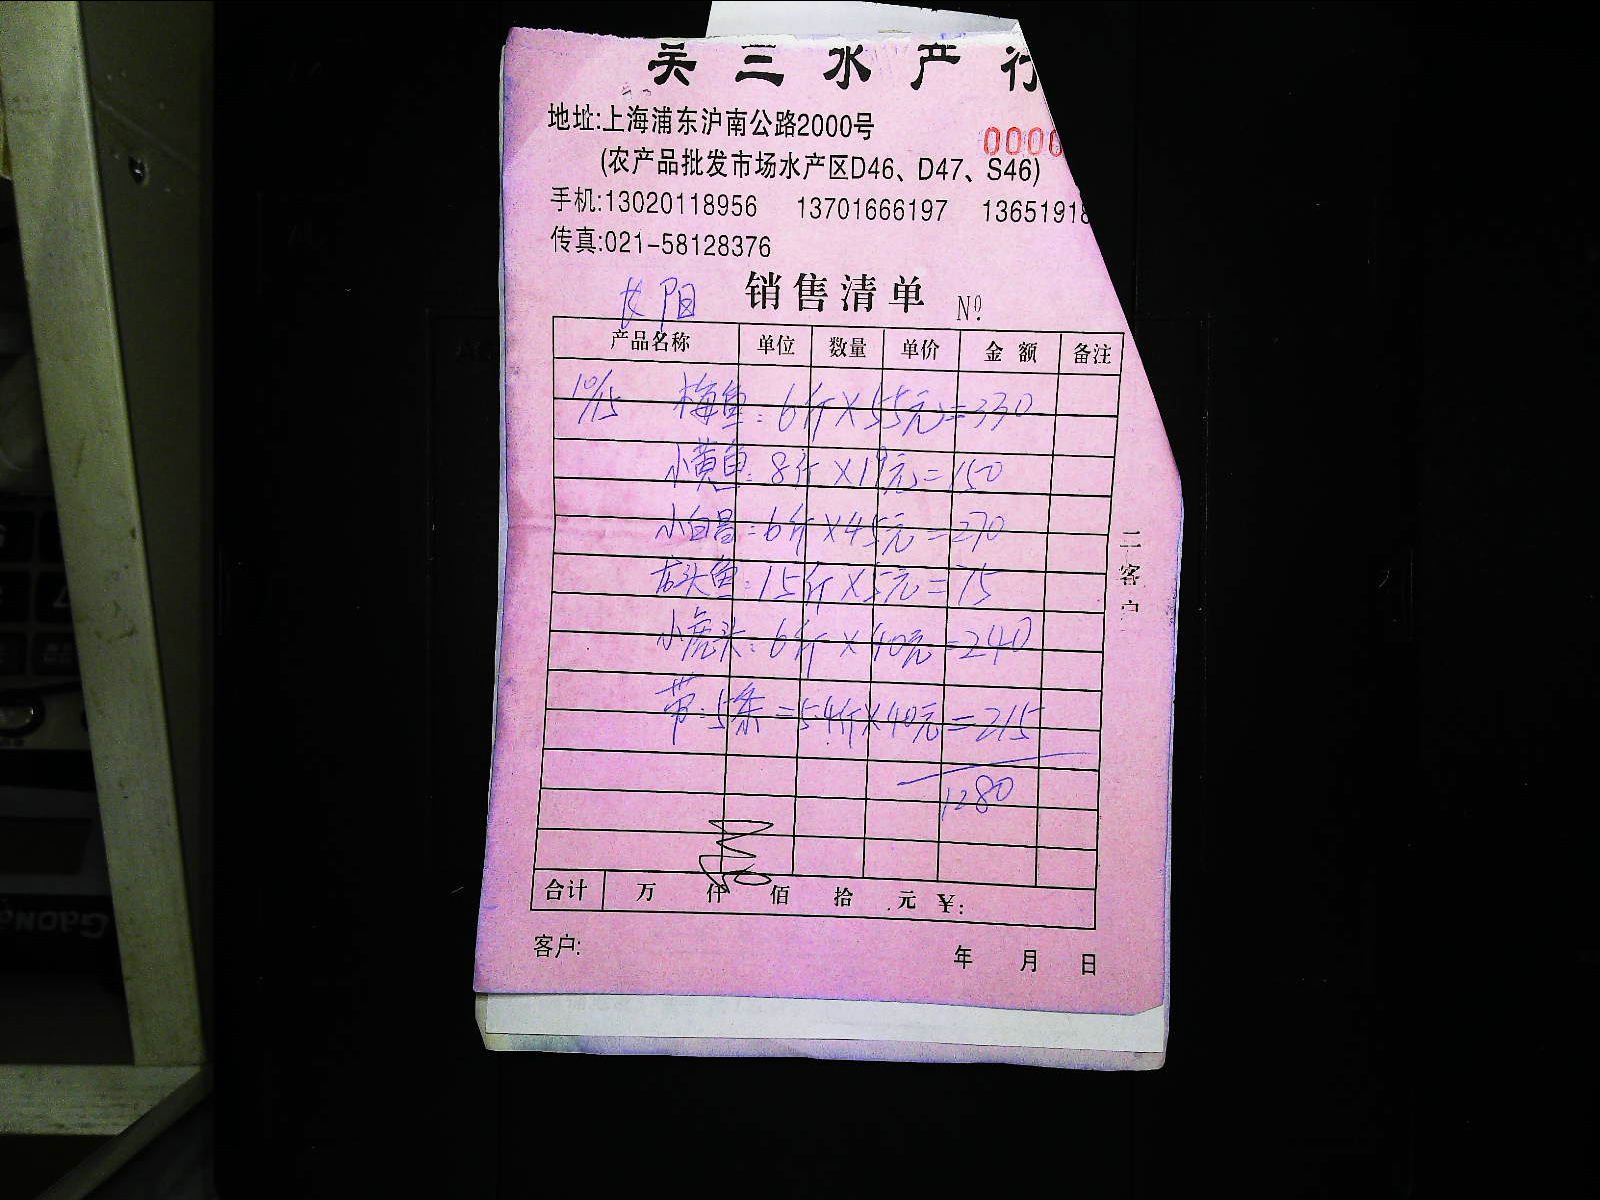 关三水产行
地址:上海浦东沪南公路2000号
0000
(农产品批发市场水产区D46、D47、S46)
手机:13020118956 13701666197 13651918
传真:021-58128376
长阳 销售清单 Nº
产品名称 单位 数量 单价 金额 备注
10/15 梅鱼:6斤×55元=330
小黄鱼:8斤×19元=150
小白昌:6斤×45元=270
龙头鱼:15斤×5元=75
小虎头:6斤×40元=240
带:5条=5.4斤×40元=215
1280
二客户
合计 万 仟 佰 拾 元 ¥:
客户: 年 月 日